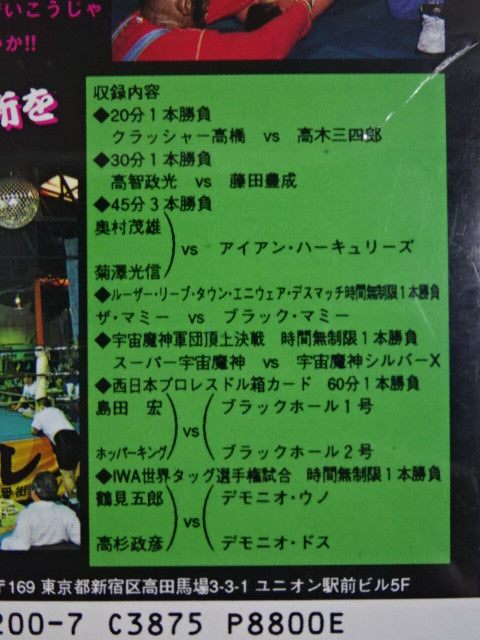 いこうじゃ
いか!!
術を
収録内容
◆20分1本勝負
クラッシャー高橋 vs 高木三四郎
◆30分1本勝負
高智政光 vs 藤田豊成
◆45分3本勝負
奥村茂雄
vs アイアン・ハーキュリーズ
菊澤光信
◆ルーザー・リーブ・タウン・エニウェア・デスマッチ時間無制限1本勝負
ザ・マミー vs ブラック・マミー
◆宇宙魔神軍団頂上決戦 時間無制限1本勝負
スーパー宇宙魔神 vs 宇宙魔神シルバーX
◆西日本プロレスドル箱カード 60分1本勝負
島田 宏 ブラックホール1号
vs
ホッパーキング ブラックホール2号
◆IWA世界タッグ選手権試合 時間無制限1本勝負
鶴見五郎 デモニオ・ウノ
vs
高杉政彦 デモニオ・ドス
〒169 東京都新宿区高田馬場3-3-1 ユニオン駅前ビル5F
200-7 C3875 P8800E